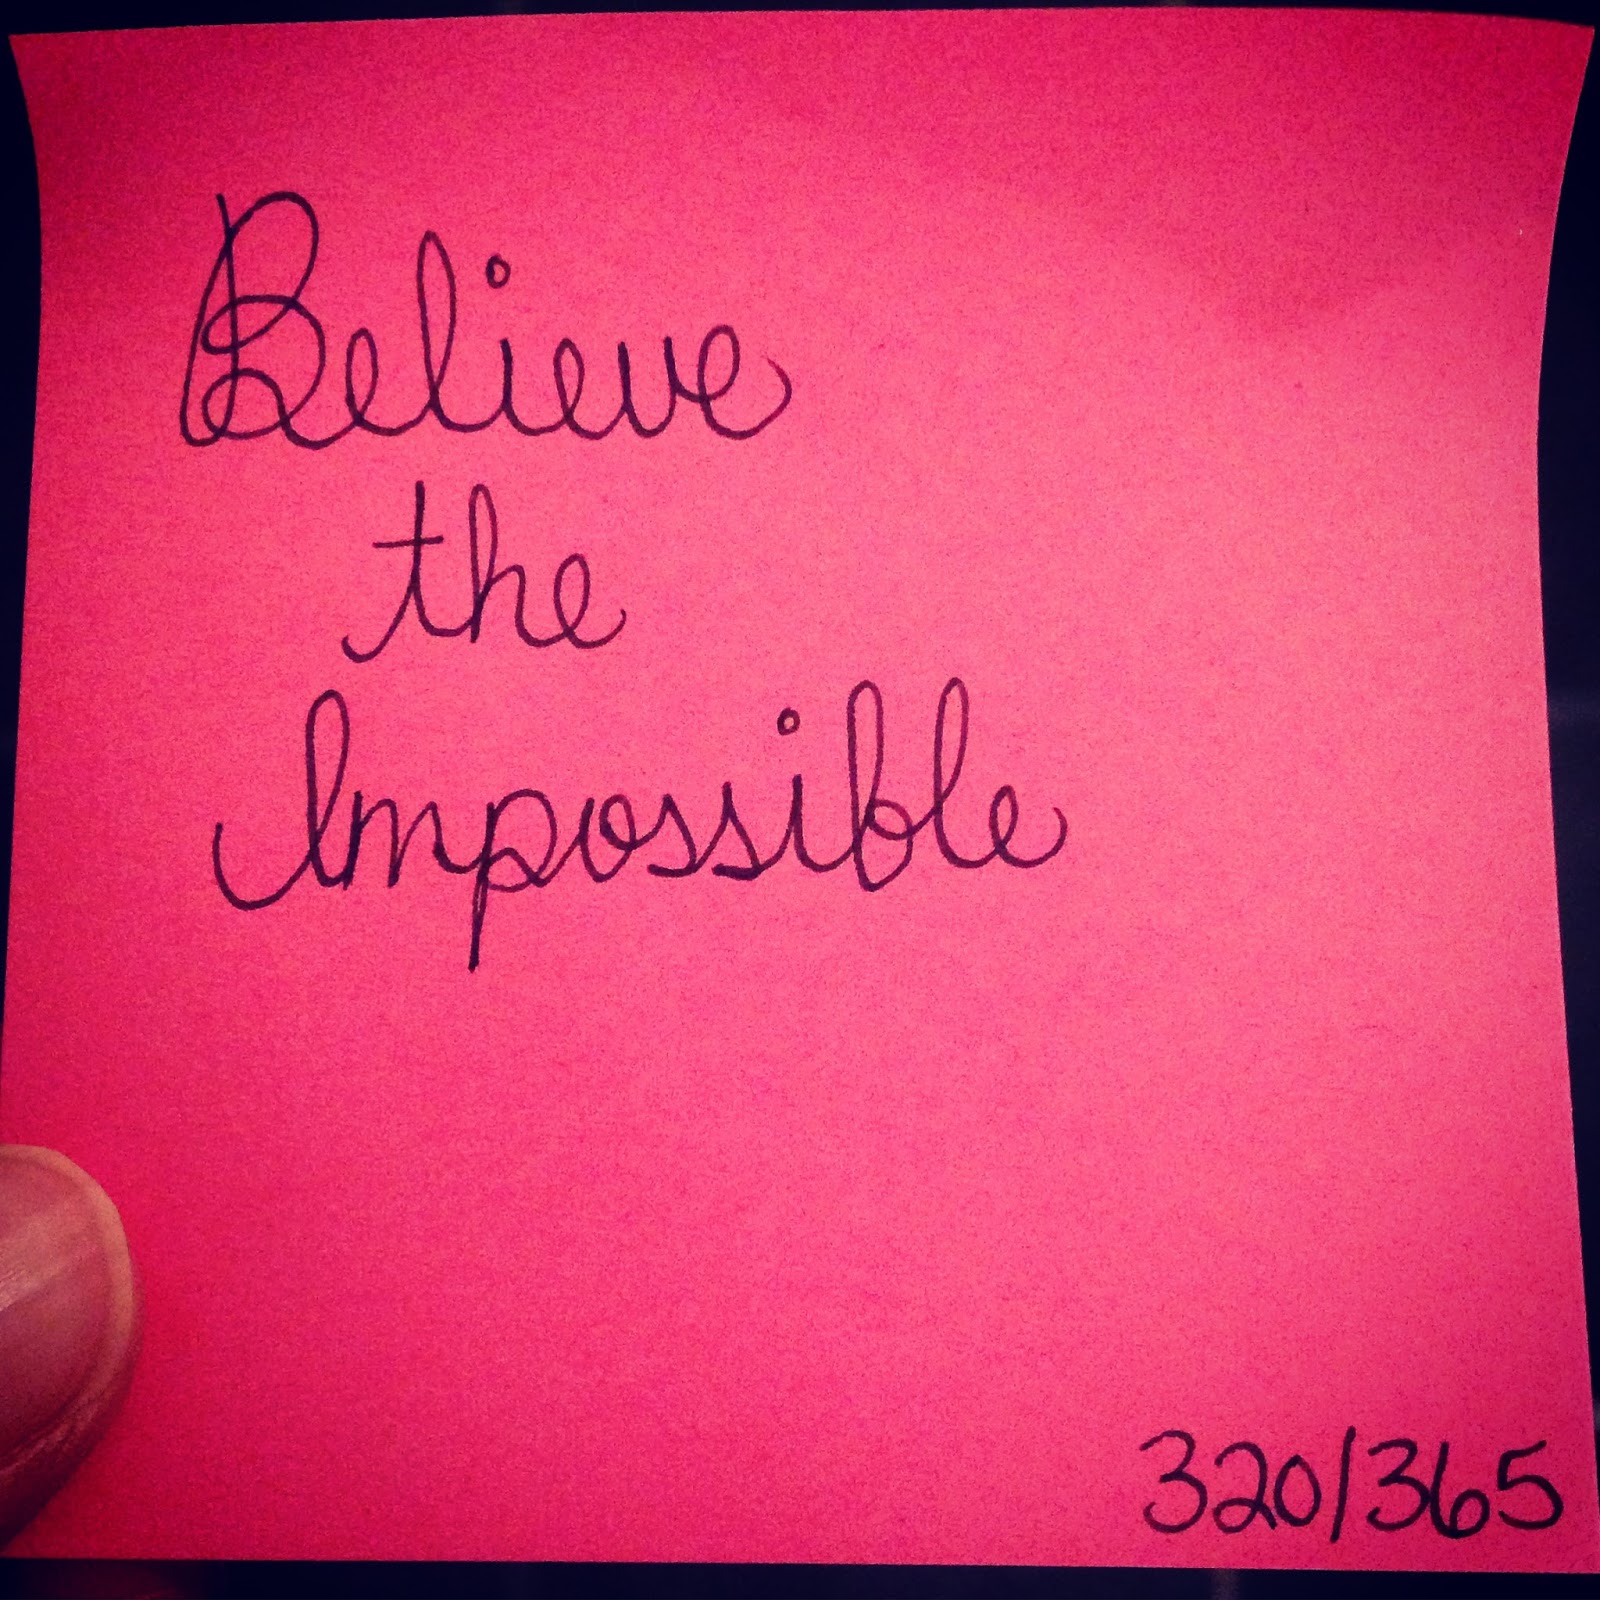 Believe
the
Impossible
320/365